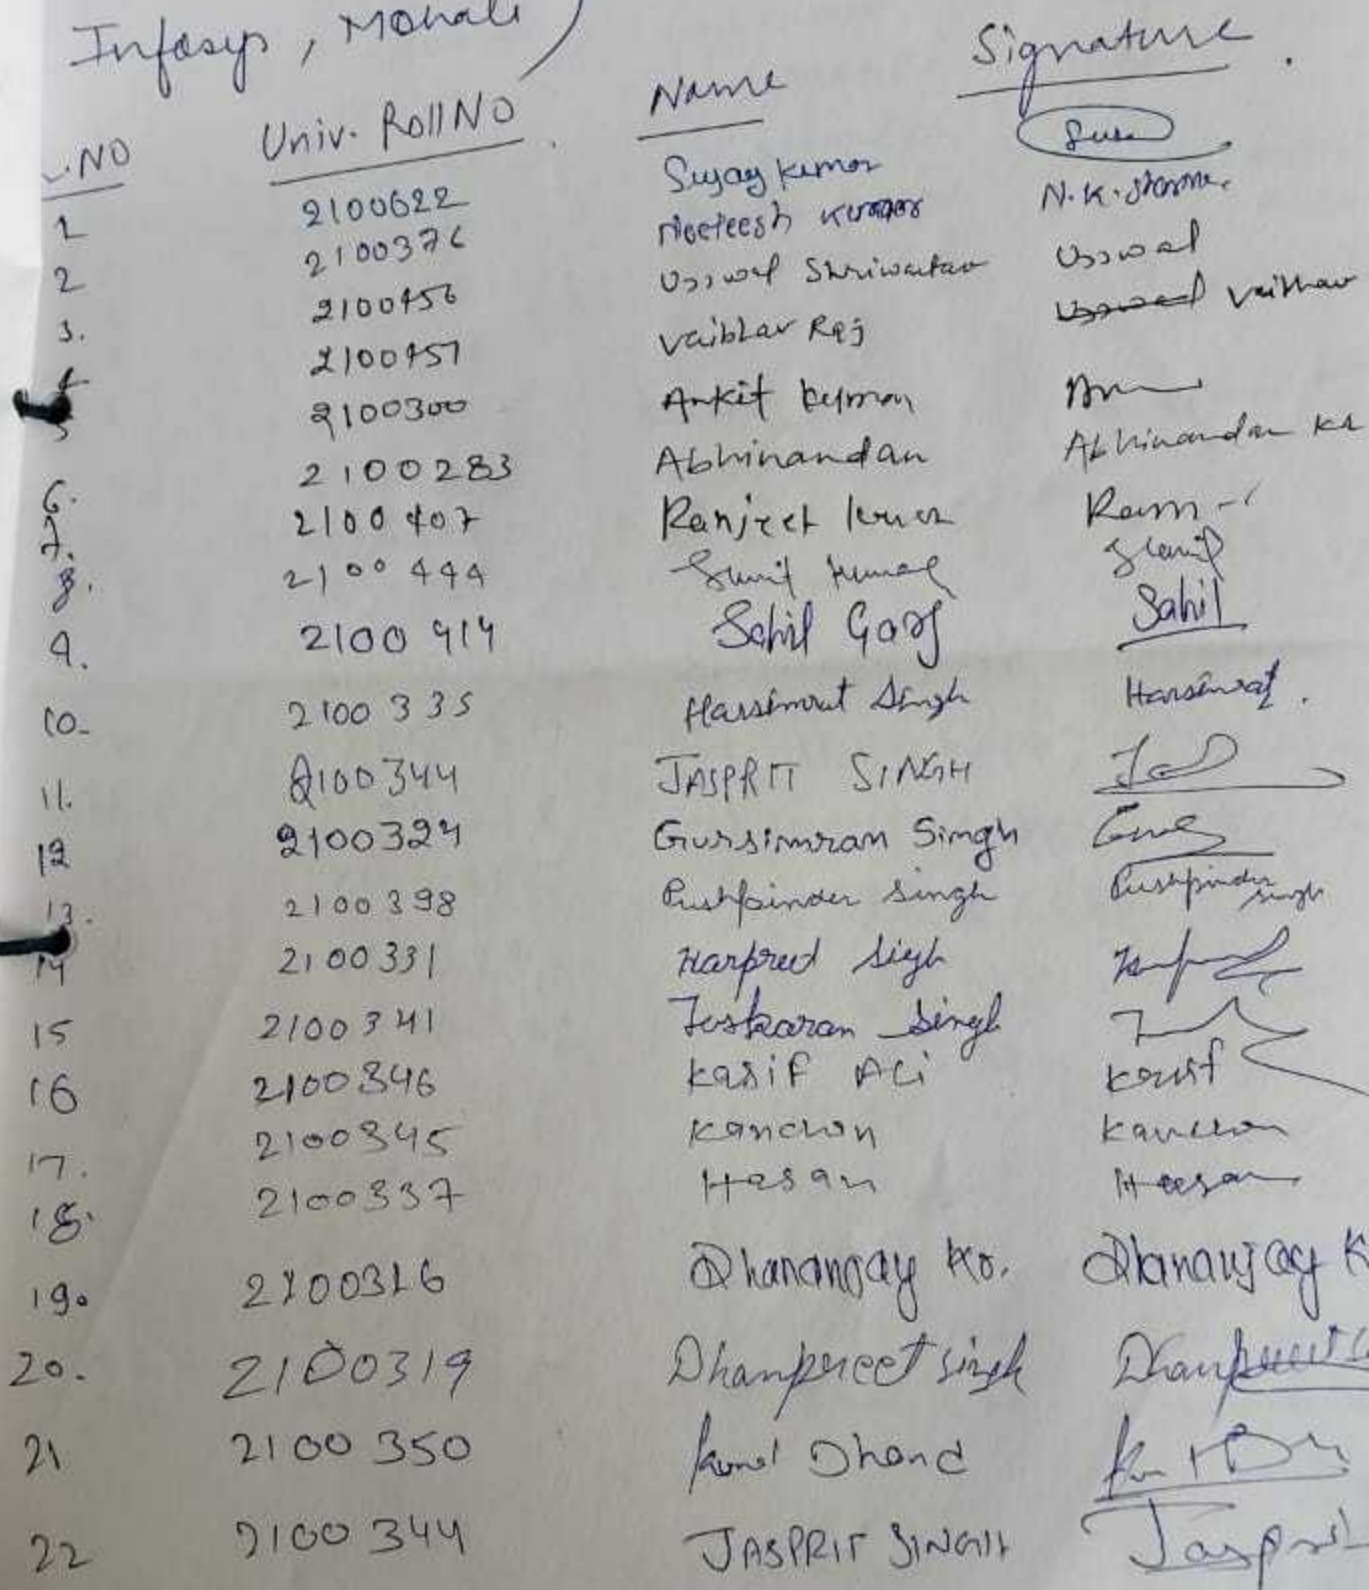 Infosys, Mohali )
S.NO Univ. Roll NO Name Signature
1 2100622 Sujay Kumar
2 2100376 Neeteesh Kumar N.K. Sharma
3. 2100456 Ujjwal Shriwastav Ujjwal
4 2100457 Vaibhav Raj Vaibhav
5 2100300 Ankit Kumar
6. 2100283 Abhinandan Abhinandan Kr
7. 2100407 Ranjeet Kumar
8. 2100444 Sunil Kumar Sunil
9. 2100414 Sahil Garg Sahil
10. 2100335 Harsimrat Singh Harsimrat.
11. 2100344 JASPRIT SINGH
12 2100324 Gursimran Singh
13. 2100398 Pushpinder Singh Pushpinder Singh
14 2100331 Harpreet Singh
15 2100341 Juskaran Singh
16 2100346 Kasif Ali Kasif
17. 2100345 Kanchan Kanchan
18. 2100337 Hasan Hasan
19. 2100316 Dhananjay Kr. Dhananjay K
20. 2100319 Dhanpreet Singh Dhanpreet
21 2100350 Kunal Dhand
22 2100344 JASPRIT SINGH Jasprit